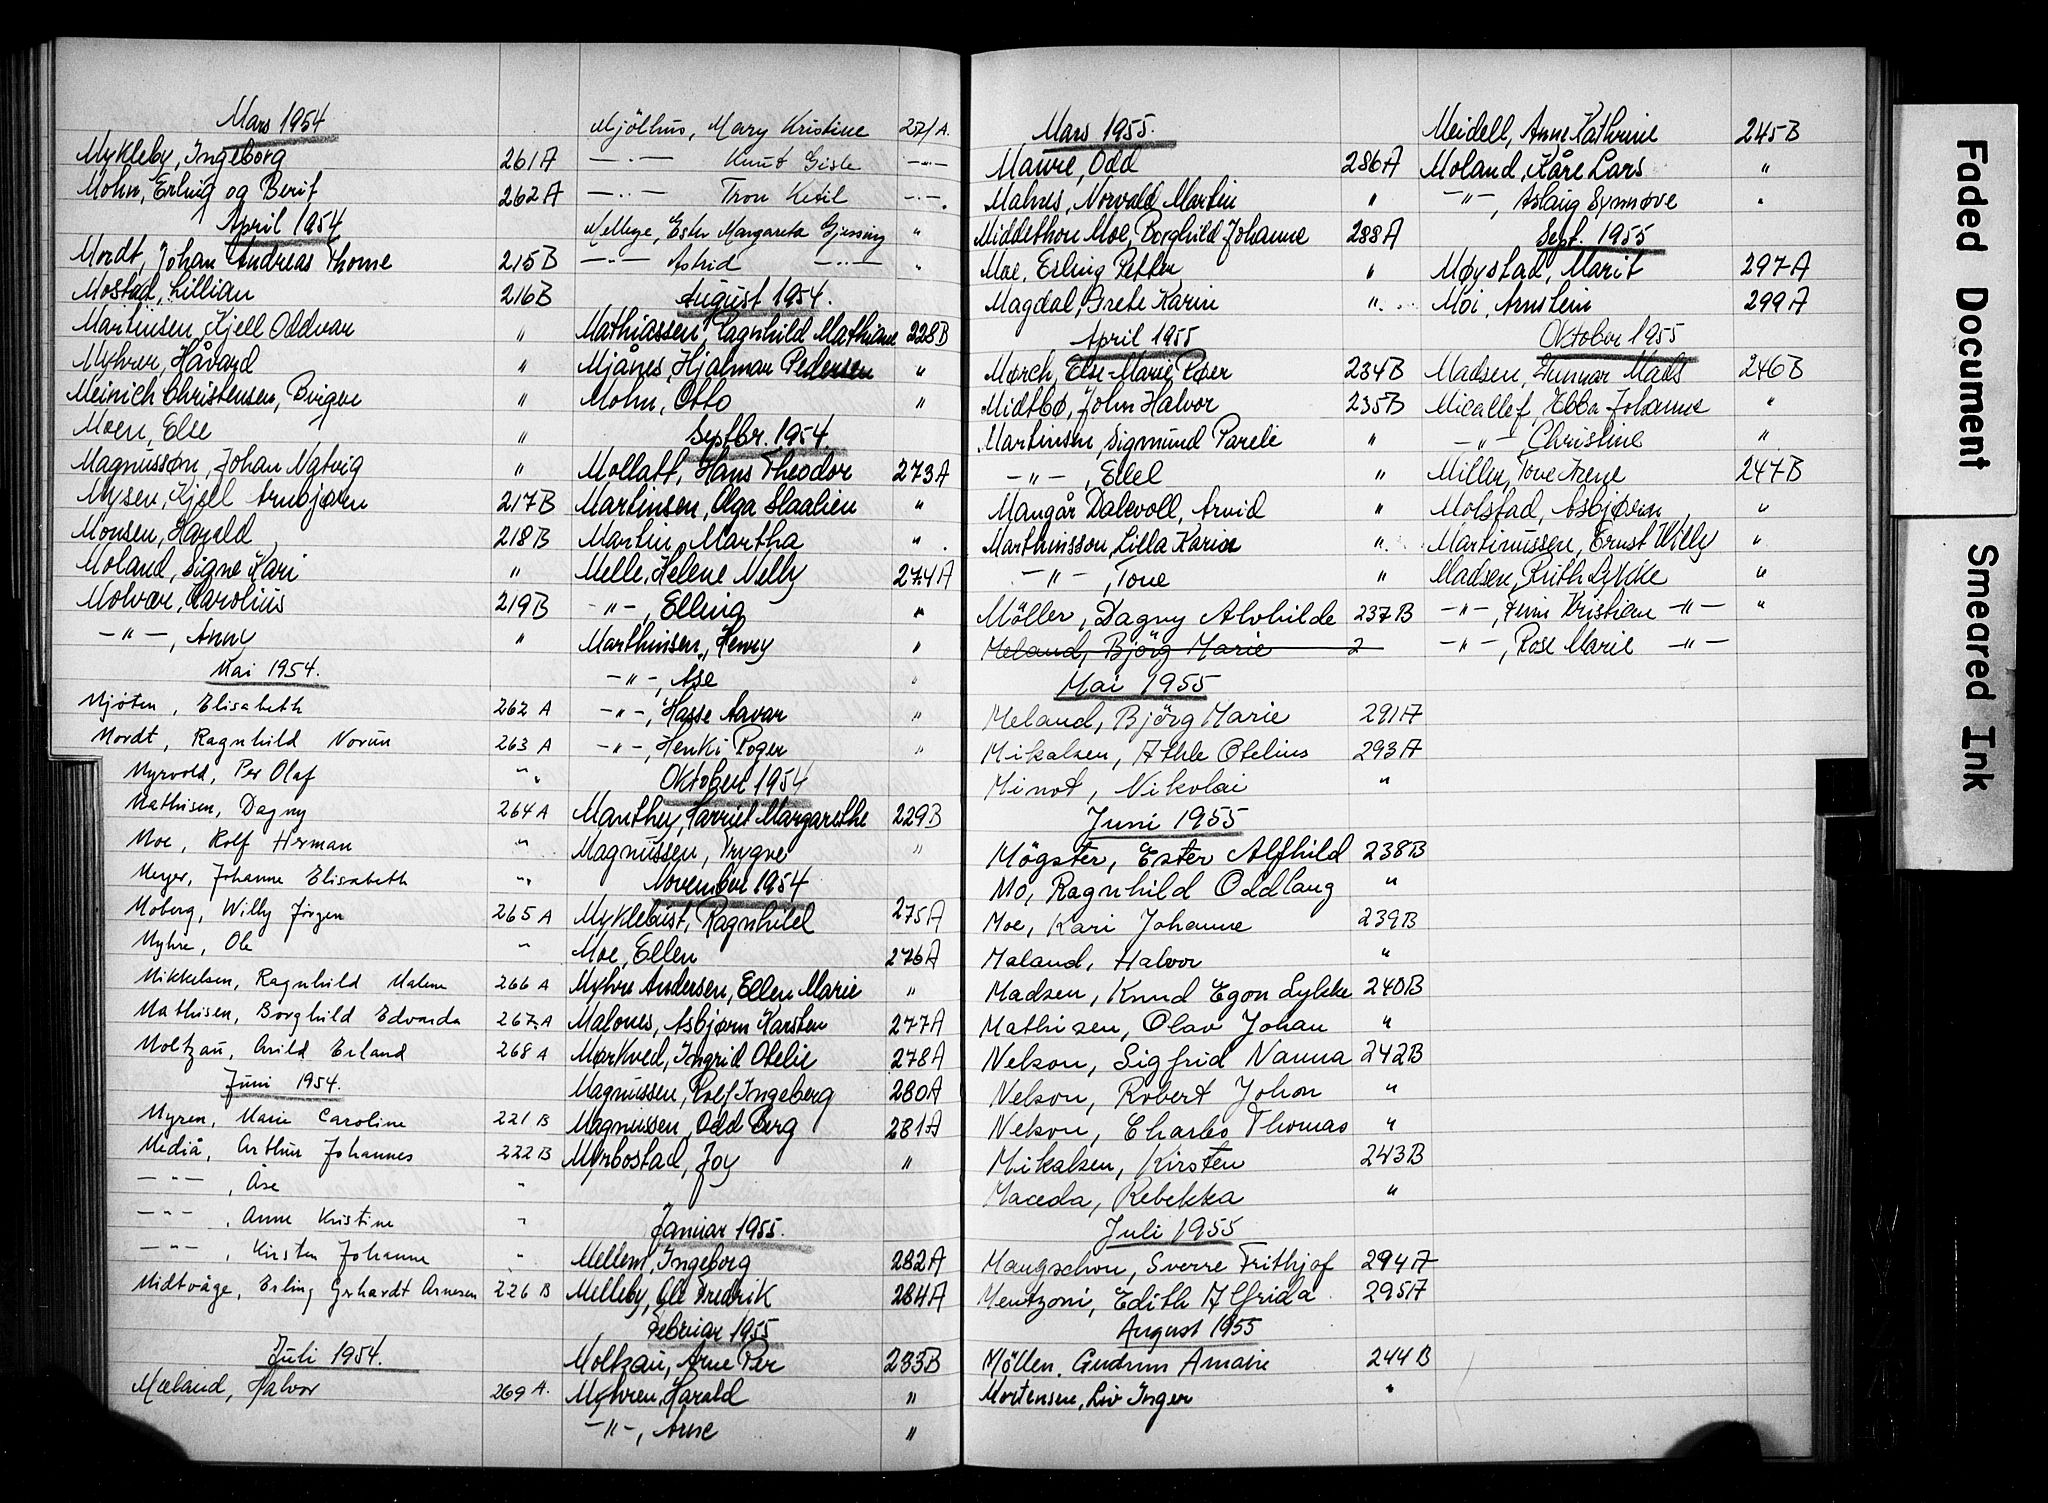 Mars 1954
Mykleby, Ingeborg 261A
Mohn, Erling og Berit 262A
April 1954
Mordt, Johan Andreas Thome 215B
Mostad, Lillian 216B
Martinsen, Kjell Oddvar "
Myhrer, Håvard "
Meinich Christensen, Birger "
Moen, Else "
Magnussøn, Johan Natvig "
Mysen, Kjell Arnbjørn 217B
Monsen, Harald 218B
Moland, Signe Kari "
Molvær, Karolius 219B
-"-, Anny "
Mai 1954.
Mjøten, Elisabeth 262 A
Mordt, Ragnhild Norun 263 A
Myrvold, Per Olaf "
Mathisen, Dagny 264 A
Moe, Rolf Herman "
Meyer, Johanne Elisabeth "
Moberg, Willy Jörgen 265 A
Myhre, Ole "
Mikkelsen, Ragnhild Malene 266 A
Mathisen, Borghild Edvarda 267 A
Moltzau, Arild Erland 268 A
Juni 1954.
Myren, Marie Caroline 221 B
Mediå, Arthur Johannes 222 B
-"-, Åse "
-"-, Anne Kristine "
-"-, Kirsten Johanne "
Midtvåge, Erling Gerhardt Arnesen 226 B
Juli 1954.
Mæland, Halvor 269 A.
Mjölhus, Mary Kristine 271 A.
-"- Knut Gisle -"-
-"- Tron Ketil -"-
Mellbye, Ester Margareta Gjessing "
-"- Astrid -"- "
August 1954.
Mathiassen, Ragnhild Mathiane 228B
Mjånes, Hjalmar Pedersen "
Mohn, Otto "
Septbr. 1954.
Mollatt, Hans Theodor 273A
Martinsen, Olga Slaalien "
Martin, Martha "
Melle, Helene Nelly 274A
-"-, Elling "
Marthinsen, Henry "
-"-, Åse "
-"-, Hasse Aavar "
-"-, Henki Roger "
Oktober 1954
Manthey, Harriet Margarethe 229B
Magnussen, Trygve "
November 1954
Myklebust, Ragnhild 275A
Moe, Ellen 276A
Myhre Andersen, Ellen Marie "
Malones, Asbjørn Karsten 277A
Mørkved, Ingrid Otelie 278A
Magnussen, Rolf Ingeberg 280A
Magnussen, Odd Berg 281A
Myrbostad, Joy "
Januar 1955.
Mellem, Ingeborg 282A
Melleby, Ole Fredrik 284A
Februar 1955
Moltzau, Arne Per 233B
Myhren, Harald "
-"-, Arne "
Mars 1955.
Mawre, Odd 286A
Malnes, Norvald Martin "
Middelthon Moe, Borghild Johanne 288A
Moe, Erling Petter "
Magdal, Grete Karin "
April 1955
Mørch, Else-Marie Røer 234B
Midtbø, John Halvor 235B
Martinsen, Sigmund Pareli "
-"-, Ellel "
Mangår Dalevoll, Arvid "
Marthinsson, Lilla Karin "
-"-, Tone "
Möller, Dagny Alvhilde 237B
Meland, Björg Marie 2
Mai 1955
Meland, Björg Marie 291A
Mikalsen, Athle Otelius 293A
Minot, Nikolai "
Juni 1955
Mögster, Ester Alfhild 238B
Mo, Ragnhild Oddlaug "
Moe, Kari Johanne 239B
Maland, Halvor "
Madsen, Knud Egon Lykke 240B
Mathisen, Olav Johan "
Nelson, Sigfrid Nanna 242B
Nelson, Robert Johon "
Nelson, Charles Thomas "
Mikalsen, Kirsten 243B
Maceda, Rebekka "
Juli 1955
Maugschou, Sverre Frithjof 294A
Mentzoni, Edith Alfrida 295A
August 1955
Möllen, Gudrun Amalie 244B
Mortensen, Liv Inger "
Meidell, Anne Kathrine 245B
Moland, Kåre Lars "
-"-, Aslaug Synnøve "
Sept. 1955
Møystad, Marit 297A
Moi, Arnstein 299A
Oktober 1955
Madsen, Gunnar Mads 246B
Micallef, Ebba Johanne "
-"- Christine "
Miller, Tove Irene 247B
Molstad, Asbjørn "
Martinussen, Ernst Willy "
Madsen, Ruth Lykke "
-"-, Finn Kristian -"- "
-"-, Rose Marie -"-
Faded Document
Smeared Ink